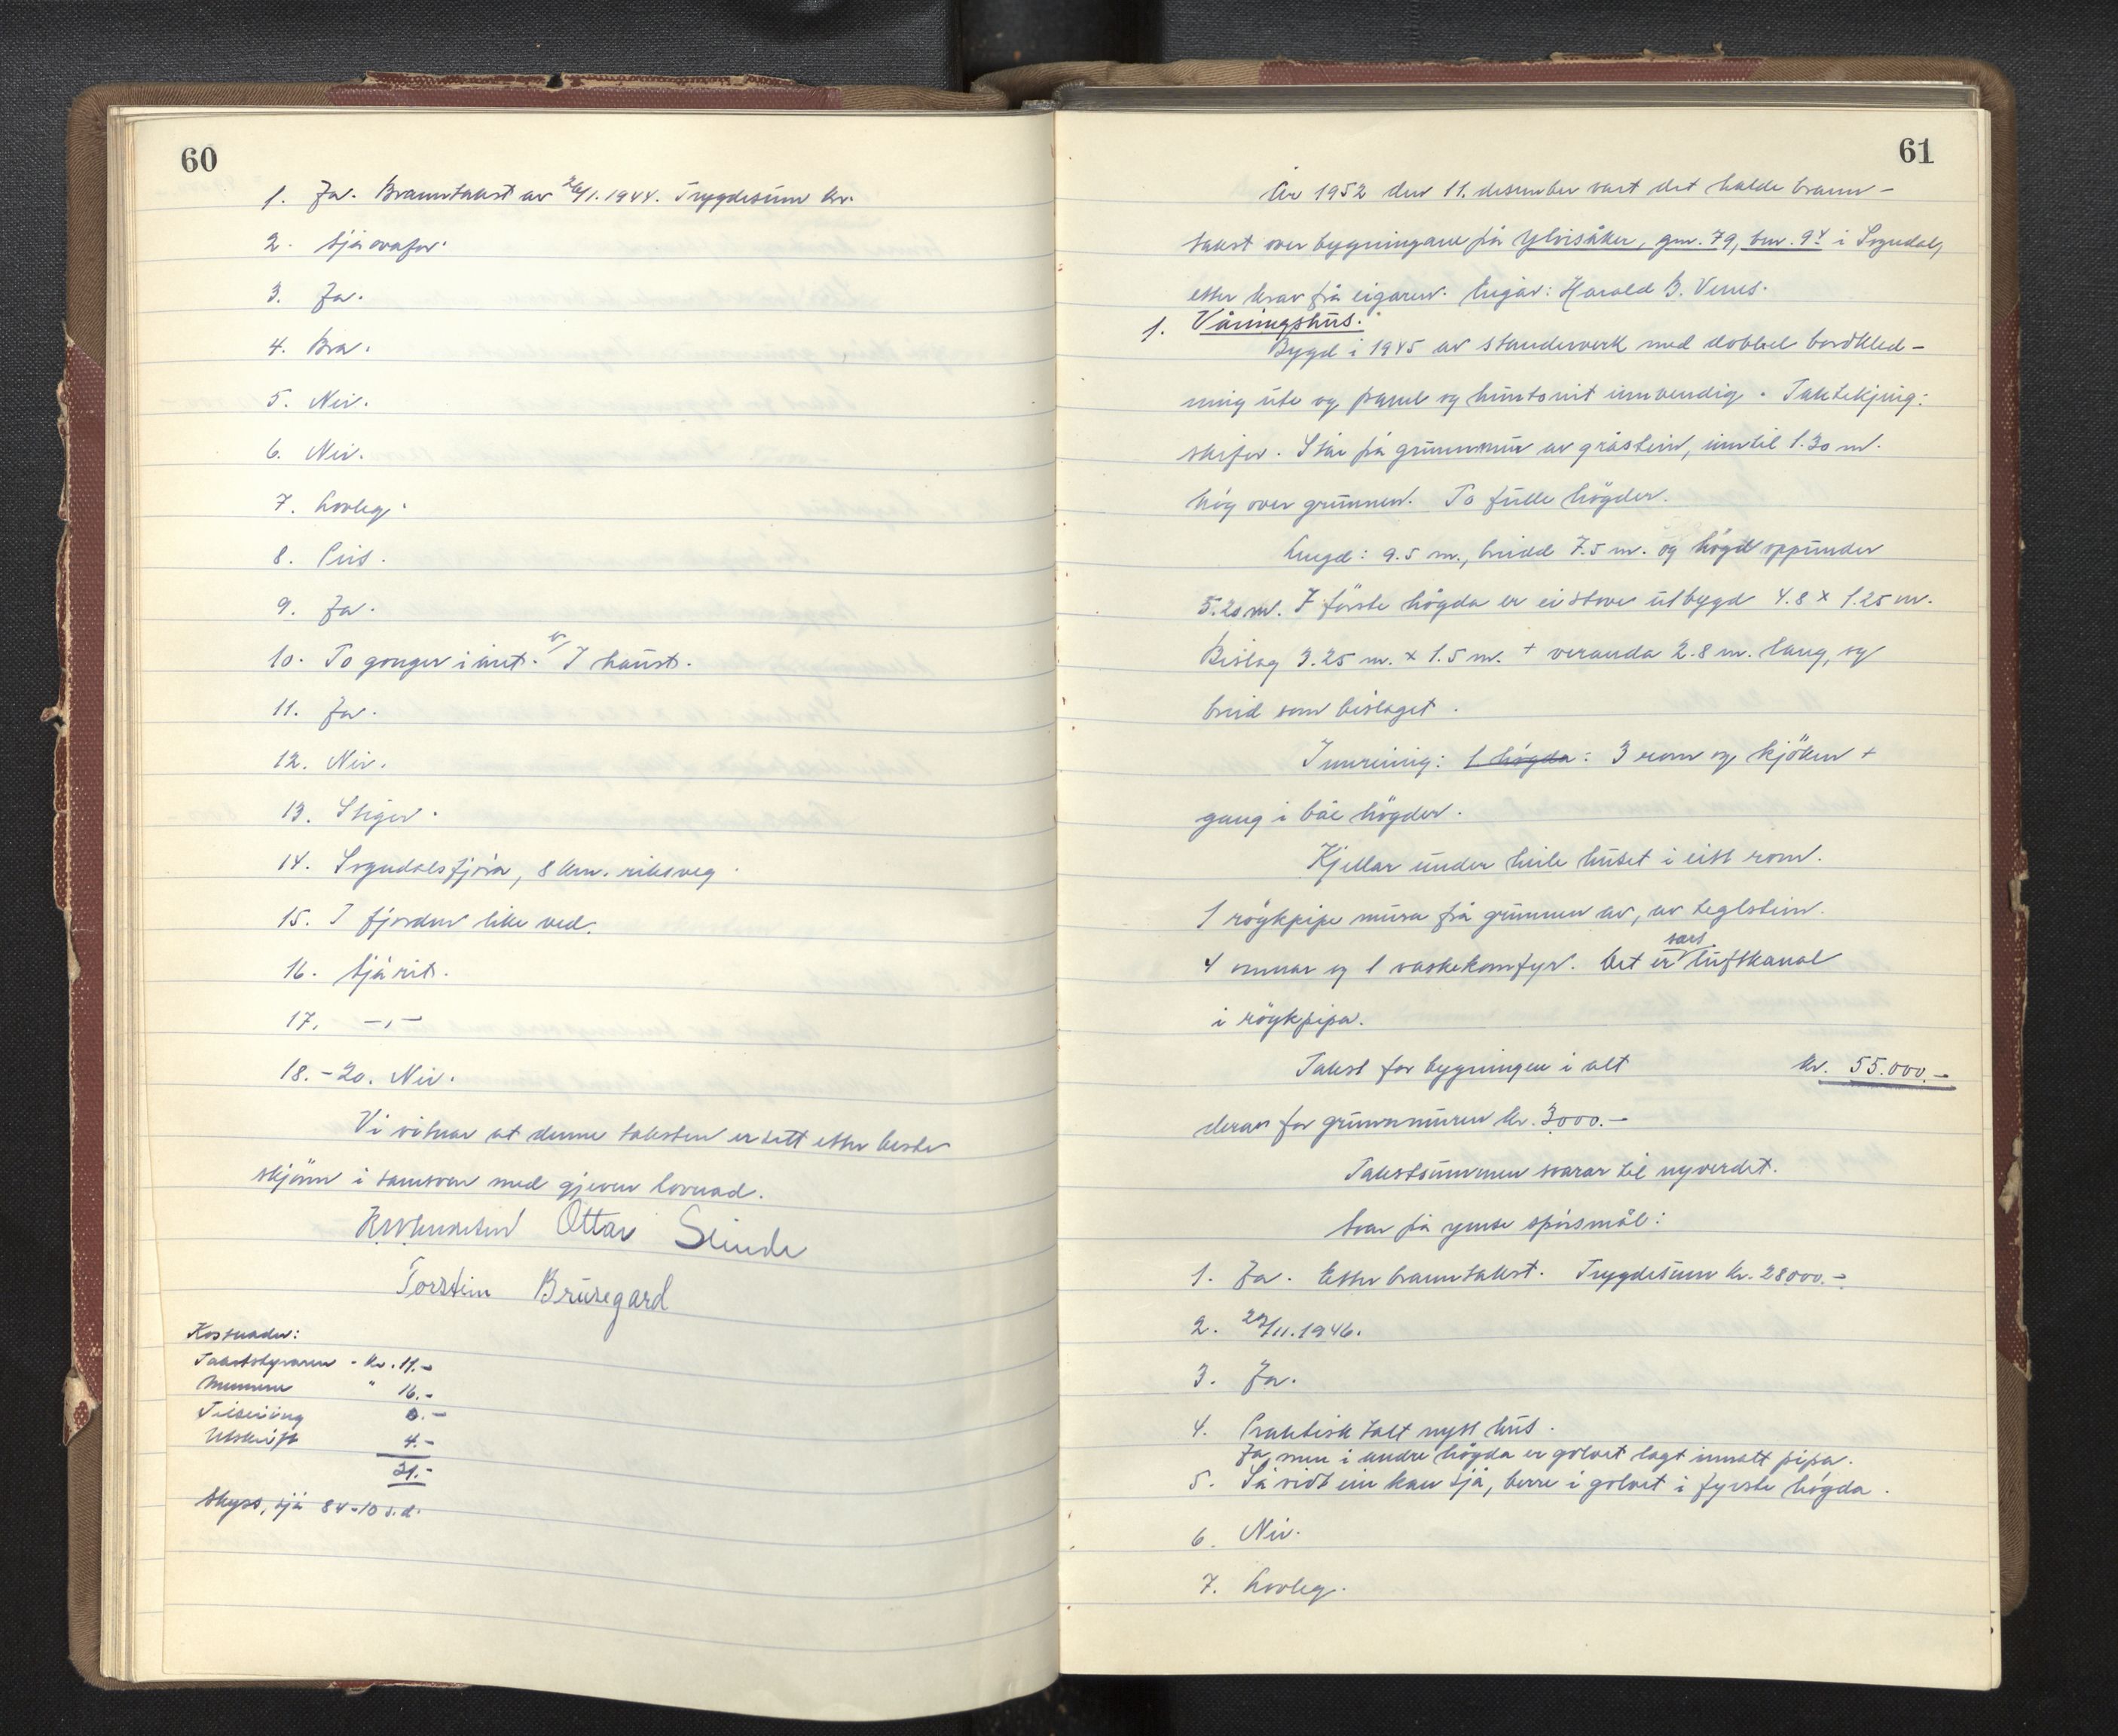 60
1. Ja. Branntakst av 26/1.1944. Trygdesum kr.
2. Sjå ovafor.
3. Ja.
4. Bra.
5. Nei.
6. Nei.
7. Lovleg.
8. Pus.
9. Ja.
10. To gonger i året. I haust.
11. Ja.
12. Nei.
13. Stiger.
14. Sogndalsfjøra, 8 km. riksveg.
15. I fjorden like ved.
16. Sjå rit.
17. -"-
18.-20. Nei.
Vi vitnar at denne taksten er sett etter beste
skjönn i samsvar med gjeven lovnad.
Ottar Slinde
Torstein Brüsegard
Kostnader:
Takststyraren - kr. 11.-
Mennene " 16.-
Tilseiing 0.-
Utskrift 4.-
31.-
Skyss, sjå 84-10 s.d.
61
År 1952 den 11. desember vart det halde brann-
takst over bygningane på Ylvisåker, gnr. 79, bnr. 94 i Sogndal,
etter krav frå eigaren. Eigar: Harald B. Venes.
1. Våningshus.
Bygd i 1945 av standerverk med dobbel bordkled-
ning ute og panel og huntonit innvendig. Taktekjing:
skifer. Står på grunnmur av gråstein, inntil 1.30 m.
høg over grunnen. To fulle högder.
Lengd: 9.5 m., breidd 7.5 m. og högd oppunder
5.20 m. I fórste högda er ei stove utbygd 4.8 x 1.25 m.
Bislag 3.25 m. x 1.5 m. + veranda 2.8 m. lang, og
breid som bislaget.
Innreiing: 1 högda: 3 rom og kjöken +
gang i båe högder.
Kjellar under heile huset i eitt rom.
1 röykpipe mura frå grunnen av, av teglstein.
4 omnar og 1 vaskekomfyr. Det er sers luftkanal
i röykpipa.
Takst for bygningen i alt kr. 55.000.-
derav for grunnmuren kr. 3000.-
Takstsummen svarar til nyverdet.
Svar på ymse spörsmål:
1. Ja. Etter branntakst. Trygdesum kr. 28000.-
2. 29/11.1946.
3. Ja.
4. Praktisk talt nytt hus.
Ja, men i andre högda er golvet lagt innatt pipa.
5. Så vidt ein kan sjå, berre i golvet i fyrste högda.
6. Nei.
7. Lovleg.